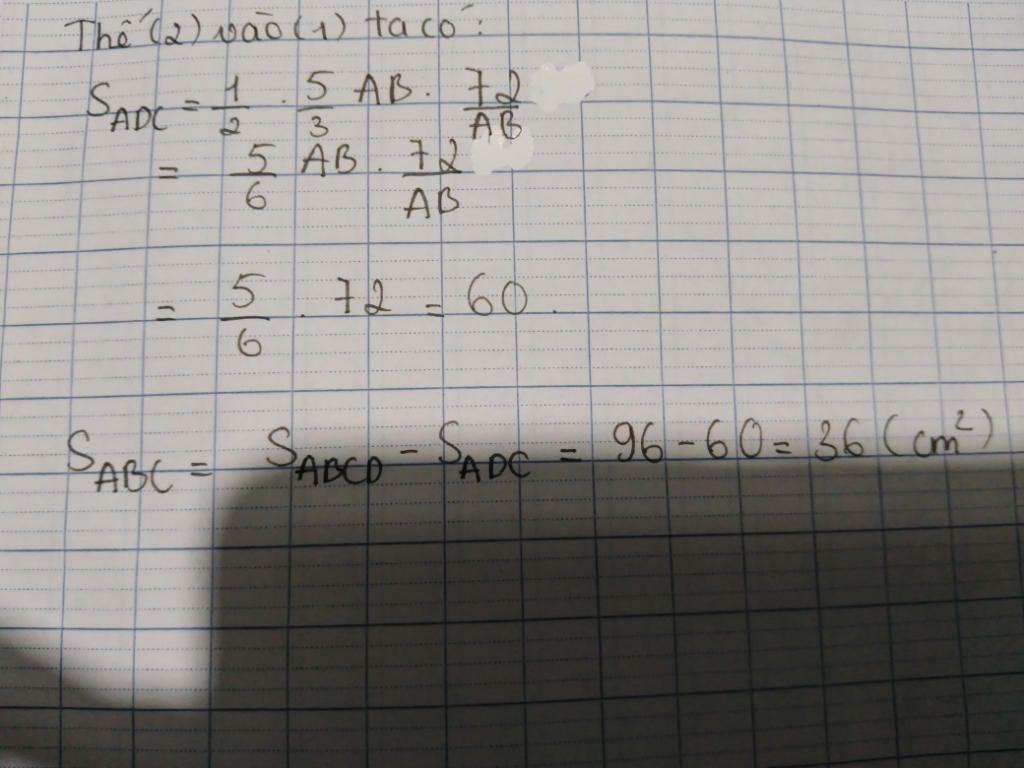 Thế (2) vào (1) ta có:
S_ADC = 1/2 . 5/3 AB . 72/AB
= 5/6 AB . 72/AB
= 5/6 . 72 = 60.
S_ABC = S_ABCD - S_ADC = 96 - 60 = 36 (cm²)